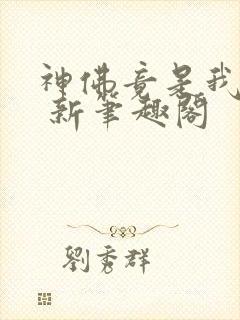 神佛竟是我
新笔趣阁
劉秀群